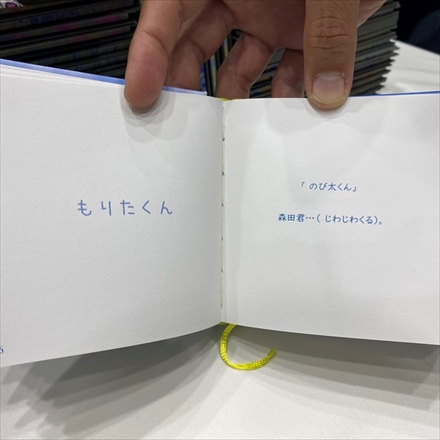 もりたくん
「 のび太くん」
森田君…( じわじわくる)。